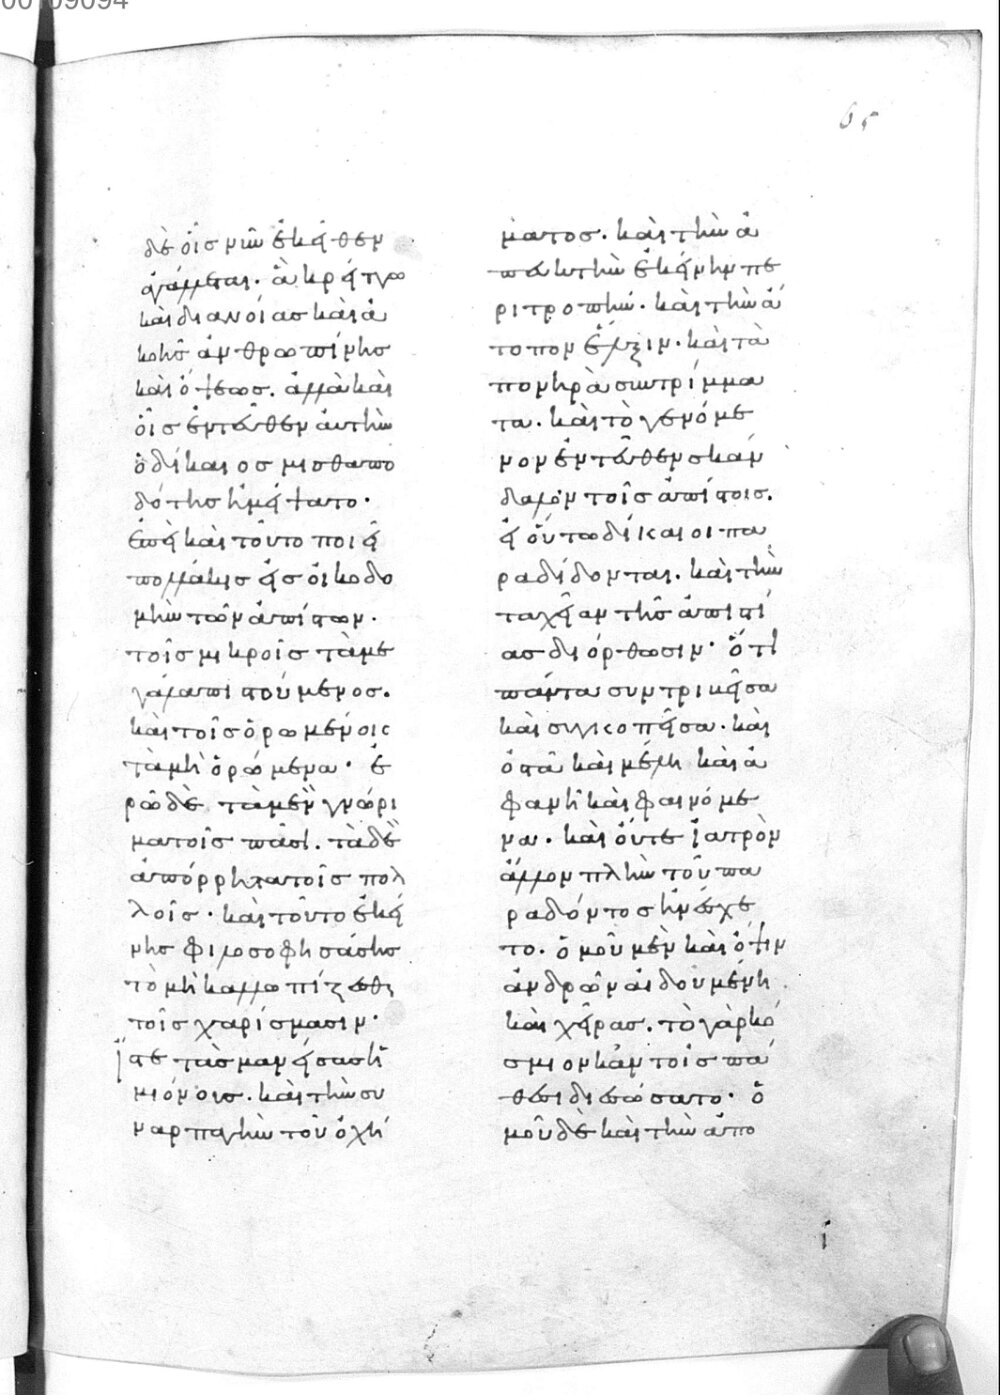 00109094
65
δὲ οἷς νῦν ἐκεῖθεν
ἀγάμεται. ἀλλ κρείττω
καὶ διανοίας καὶ ἀ
κοῆς ἀνθρωπίνης
καὶ ὄψεως. ἀλλὰ καὶ
οἷς ἐντεῦθεν αὐτὴν
ὁ δίκαιος μισθαπο
δότης ἠμείψατο·
ἐπεὶ καὶ τοῦτο ποιεῖ
πολλάκις εἰς οἰκοδο
μὴν τῶν ἀπίστων.
τοῖς μικροῖς τὰ με
γάλα πιστούμενος.
καὶ τοῖς ὁρωμένοις
τὰ μὴ ὁρώμενα· ἐ
ρῶ δὲ τὰ μὲν γνώρι
μα τοῖς πᾶσι. τὰ δὲ
ἀπόρρητα τοῖς πολ
λοῖς· καὶ τοῦτο ἐκεί
νης φιλοσοφησάσης
τὸ μὴ καλλωπίζεσθαι
τοῖς χαρίσμασιν·
ἴστε τὰς μανείσας ἡ
μιόνους. καὶ τὴν συ
ναρπαγὴν τοῦ ὀχή
ματος. καὶ τὴν ἀ
πευκτὴν ἐκείνην πε
ριτροπήν. καὶ τὴν ἄ
τοπον ἕλξιν. καὶ τὰ
πονηρὰ συντρίμμα
τα. καὶ τὸ γενόμε
νον ἐντεῦθεν σκάν
δαλον τοῖς ἀπίστοις.
εἰ οὕτω δίκαιοι πα
ραδίδονται. καὶ τὴν
ταχεῖαν τῆς ἀπιστί
ας διόρθωσιν· ὅτι
πάντα συντριβεῖσα
καὶ συγκοπεῖσα. καὶ
ὀστᾶ καὶ μέλη καὶ ἀ
φανῆ καὶ φαινόμε
να. καὶ οὔτε ἰατρὸν
ἄλλον πλὴν τοῦ πα
ραδόντος ἠνέσχε
το. ὁμοῦ μὲν καὶ ὄψιν
ἀνδρῶν αἰδουμένη
καὶ χεῖρας. τὸ γὰρ κό
σμιον κἂν τοῖς πά
θεσι διεσώσατο· ὁ
μοῦ δὲ καὶ τὴν ἀπο